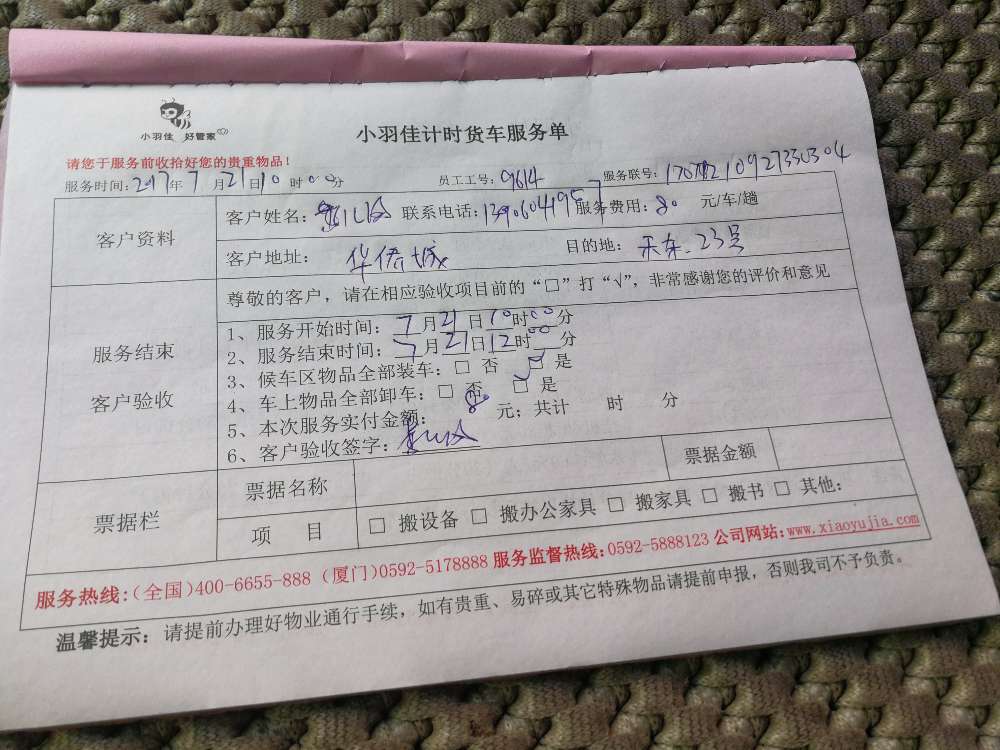 小羽佳 好管家
小羽佳计时货车服务单
请您于服务前收拾好您的贵重物品！
服务时间：2017年7月21日10时00分 员工工号：9614 服务联号：
客户资料
客户姓名： 联系电话： 服务费用：80 元/车/趟
客户地址：华侨城 目的地：禾东.23号
尊敬的客户，请在相应验收项目前的“□”打“√”，非常感谢您的评价和意见
服务结束
客户验收
1、服务开始时间：7月21日10时00分
2、服务结束时间：7月21日12时00分
3、候车区物品全部装车：□ 否 □ 是
4、车上物品全部卸车：□ 否 □ 是
5、本次服务实付金额：80元；共计 时 分
6、客户验收签字：
票据栏
票据名称 票据金额
项 目 □ 搬设备 □ 搬办公家具 □ 搬家具 □ 搬书 □ 其他：
服务热线：（全国）400-6655-888（厦门）0592-5178888 服务监督热线：0592-5888123 公司网站：www.xiaoyujia.com
温馨提示：请提前办理好物业通行手续，如有贵重、易碎或其它特殊物品请提前申报，否则我司不予负责。